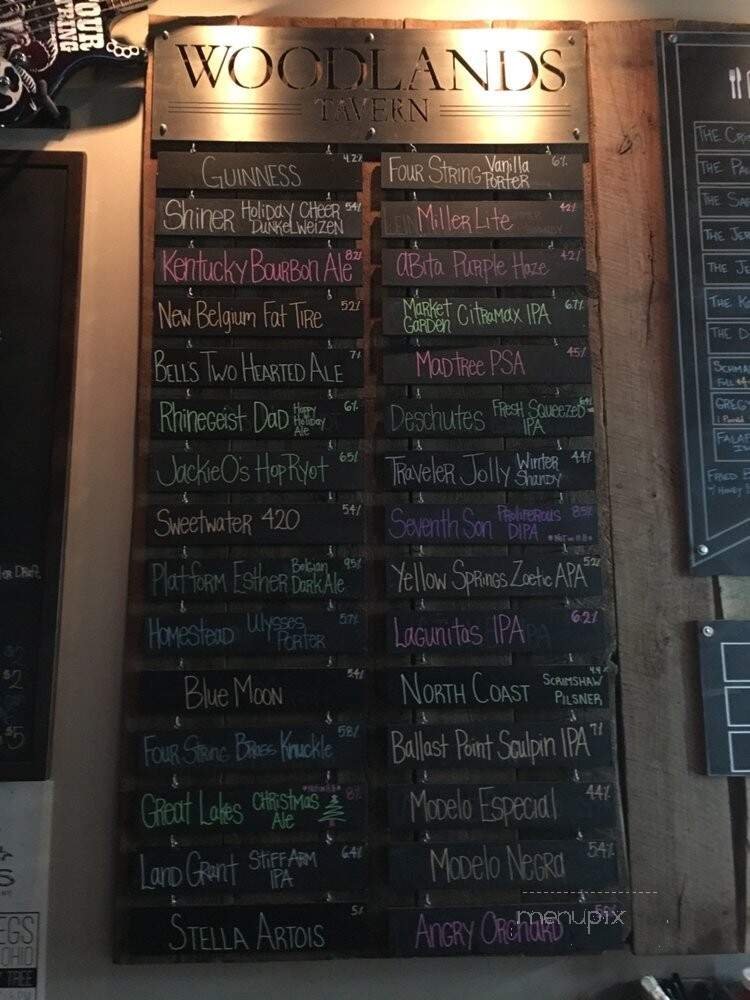 YOUR
STRING
WOODLANDS
TAVERN
GUINNESS 4.2%
Shiner Holiday Cheer 5.4%
Dunkelweizen
Kentucky Bourbon Ale 8.2%
New Belgium Fat Tire 5.2%
Bell's Two Hearted Ale 7%
Rhinegeist Dad Happy Holiday Ale 6%
Jackie O's Hop Ryot 6.5%
Sweetwater 420 5.4%
Platform Esther Belgian Dark Ale 9.5%
Homestead Ulysses Porter 5.7%
Blue Moon 5.4%
Four String Brass Knuckle 5.8%
Great Lakes Christmas Ale 8%
Land Grant Stiff Arm IPA 6.4%
Stella Artois 5%
Four String Vanilla Porter 6%
Miller Lite 4.2%
Abita Purple Haze 4.2%
Market Garden Citramax IPA 6.7%
MadTree PSA 4.5%
Deschutes Fresh Squeezed IPA
Traveler Jolly Winter Shandy 4.4%
Seventh Son Proliferous DIPA 8.5%
Yellow Springs Zoetic APA 5.2
Lagunitas IPA 6.2%
North Coast Scrimshaw Pilsner 4.4%
Ballast Point Sculpin IPA 7%
Modelo Especial 4.4%
Modelo Negra 5.4%
Angry Orchard
menupix
The
The
The
The Jer
The Je
The K
The D
Schma
Greg
1 Pound
Falaf
Fried
w/ Honey
or Draft
$2
EGS
OHIO